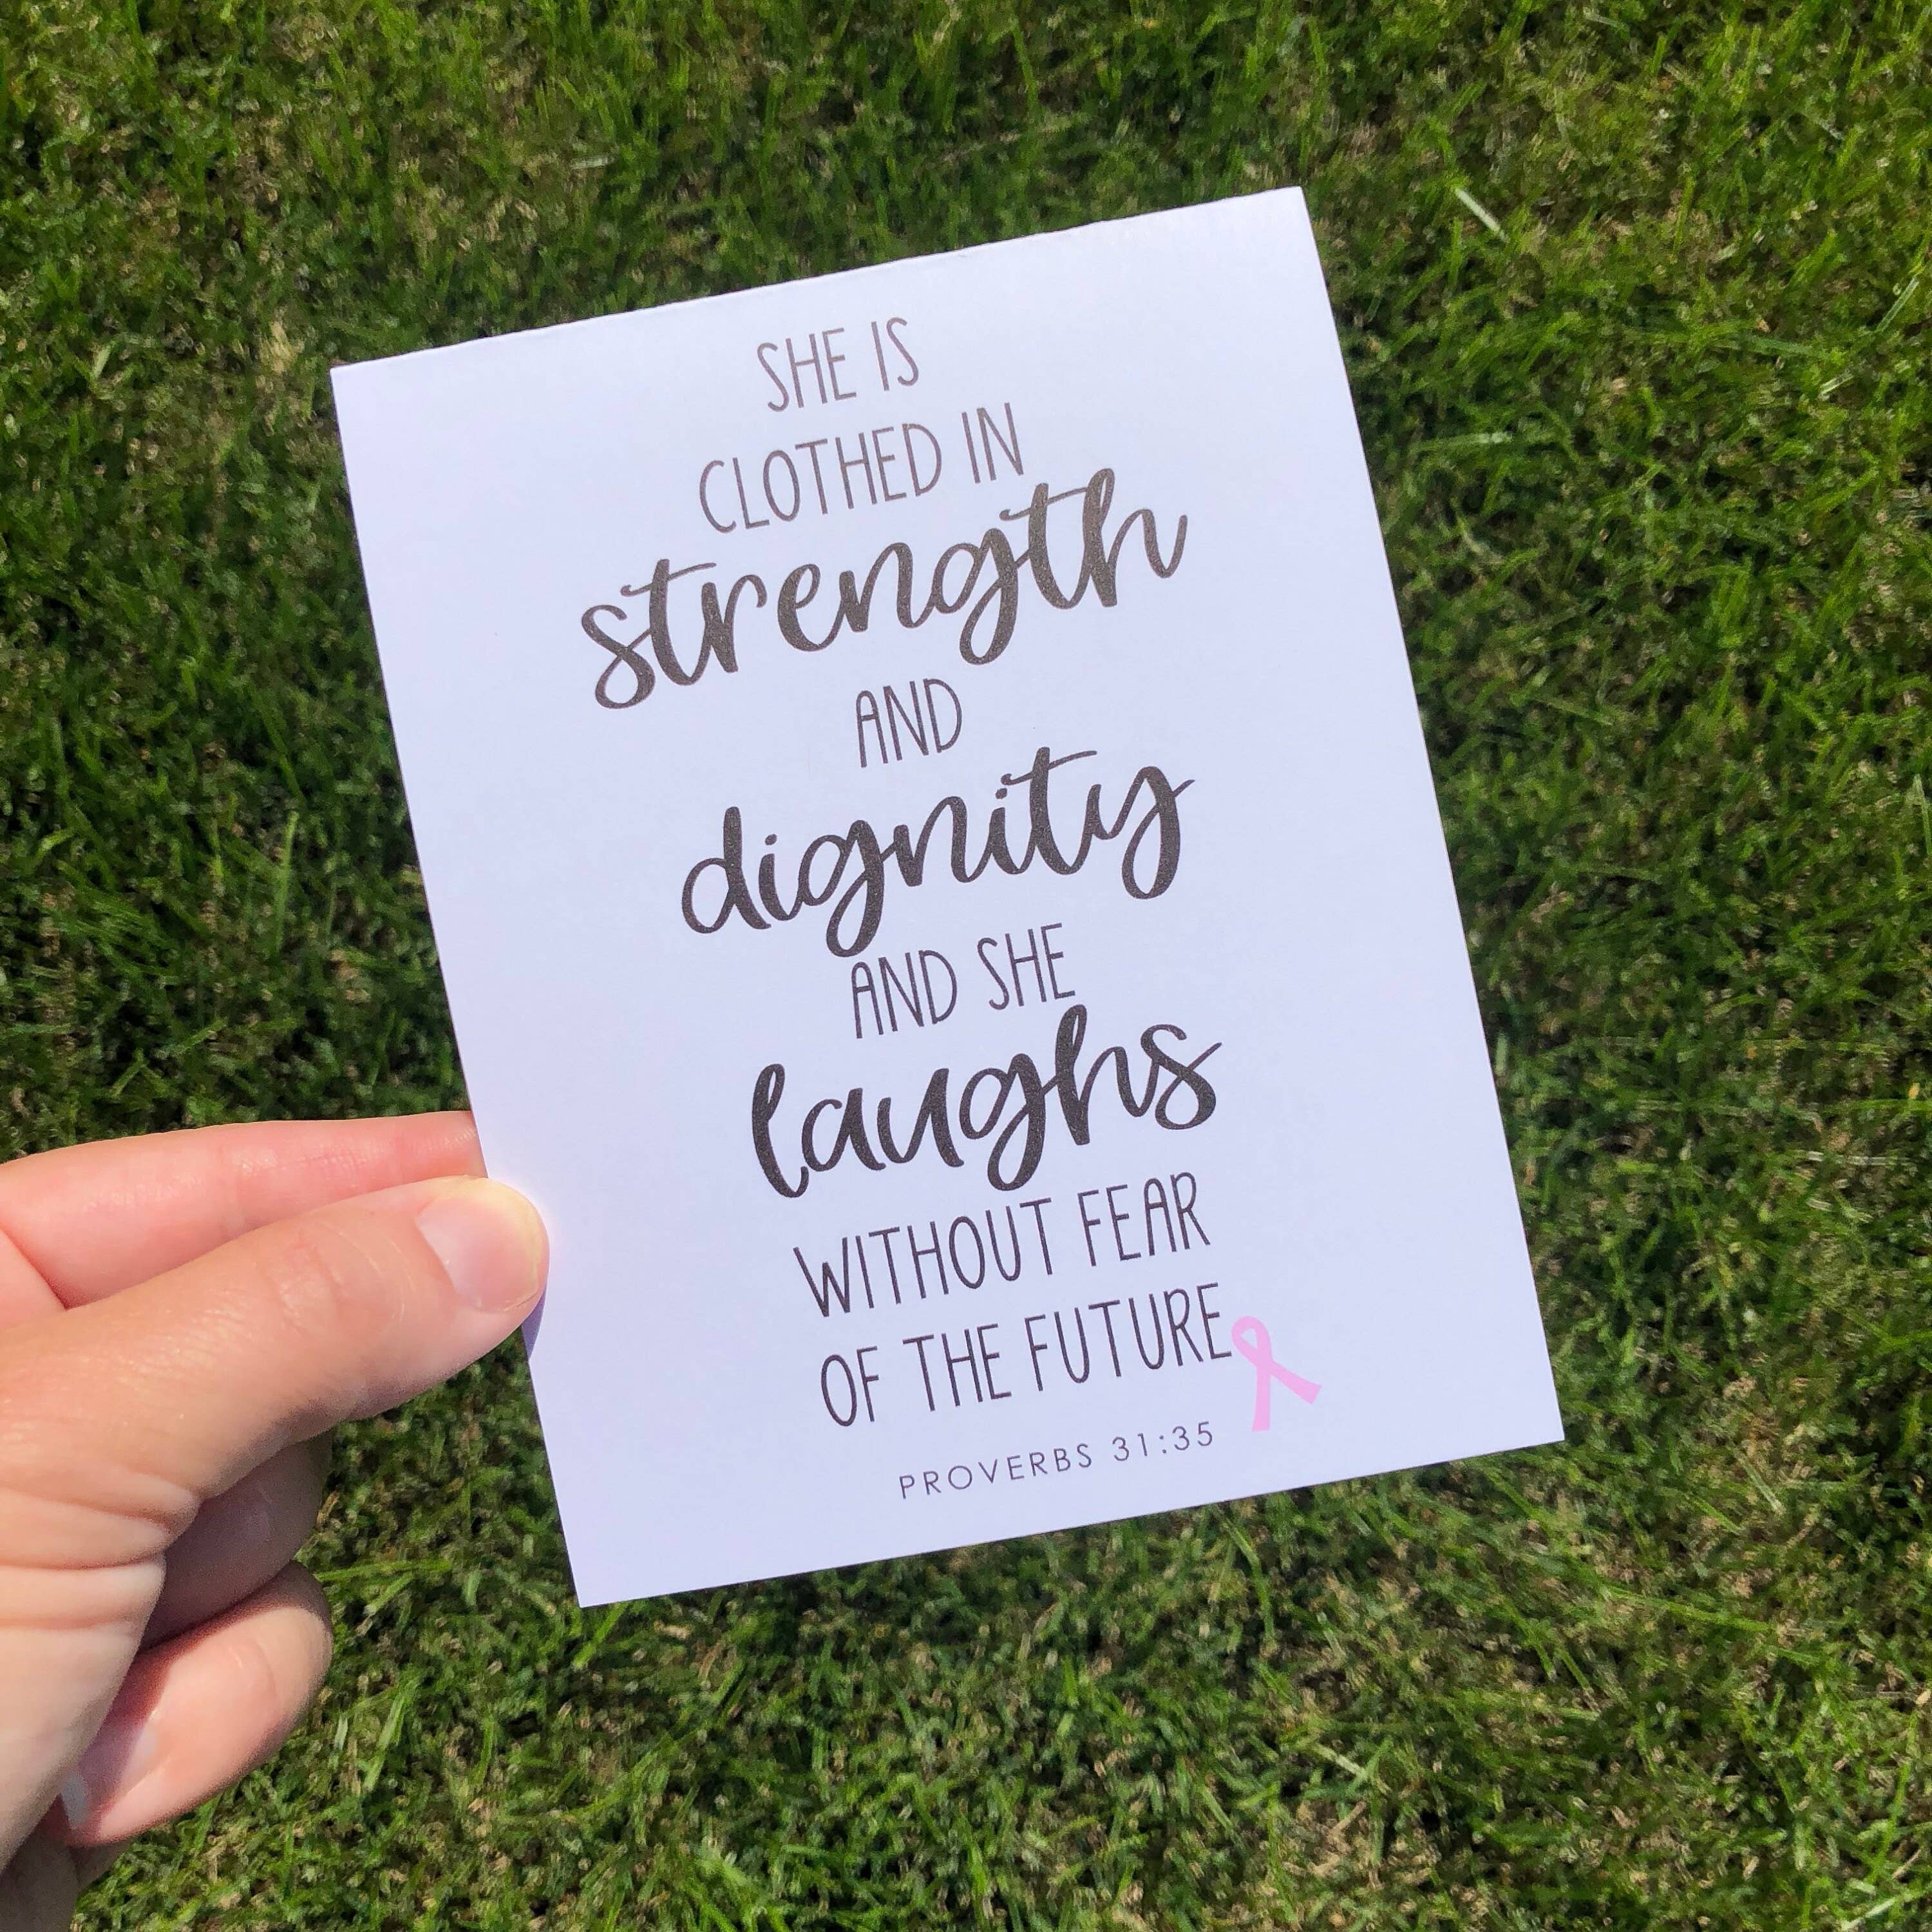 SHE IS
CLOTHED IN
strength
AND
dignity
AND SHE
laughs
WITHOUT FEAR
OF THE FUTURE
PROVERBS 31:35